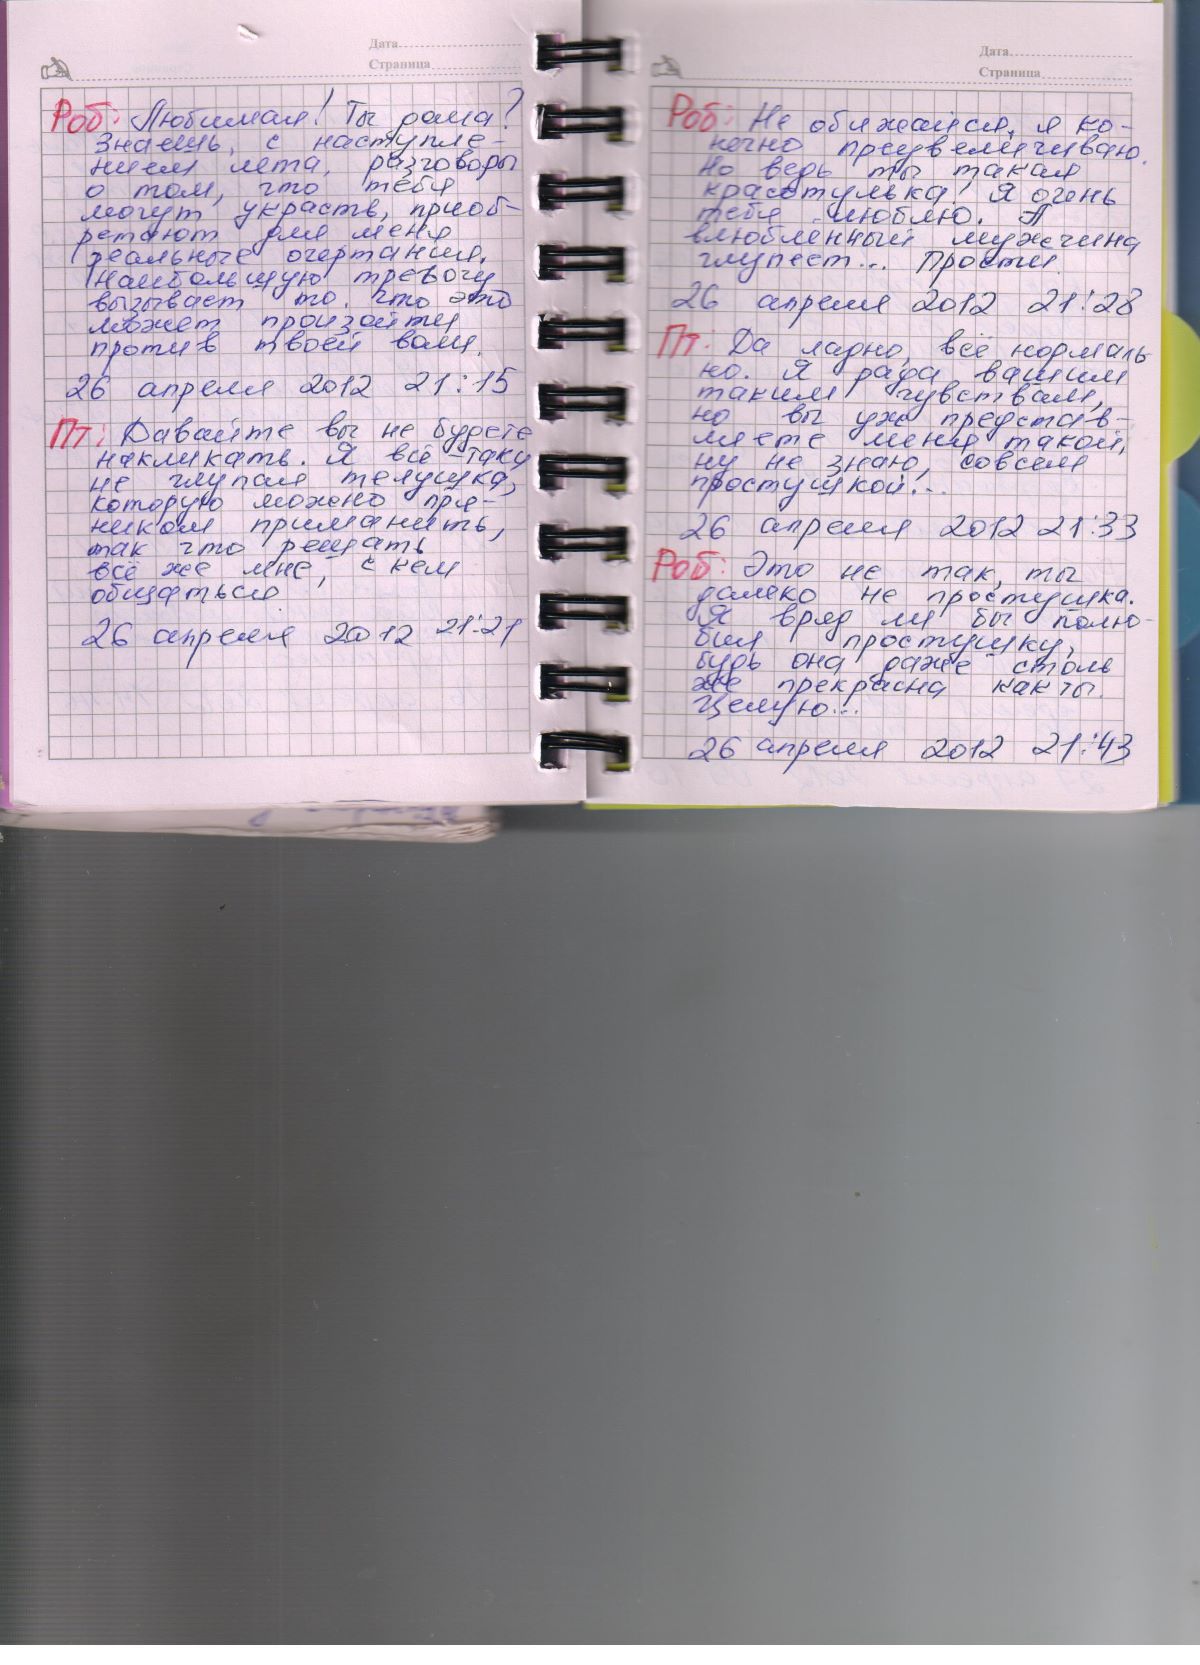 Дата
Страница
Роб: Любимая! Ты дома?
Знаешь, с наступле-
нием лета, разговоры
о том, что тебя
могут украсть, приоб-
ретают для меня
реальные очертания.
Наибольшую тревогу
вызывает то, что это
может произойти
против твоей воли.
26 апреля 2012 21:15
Пт: Давайте вы не будете
накликать. Я всё-таки
не глупая телушка,
которую можно пря-
ником приманить,
так что решать
всё же мне, с кем
общаться
26 апреля 2012 21:21
Дата
Страница
Роб: Не обижайся, я ко-
нечно преувеличиваю.
Но ведь ты такая
красотулька! Я очень
тебя люблю. А
влюблённый мужчина
глупеет... Прости.
26 апреля 2012 21:28
Пт: Да ладно, всё нормаль
но. Я рада вашим
таким чувствам,
но вы уж представ-
ляете меня такой,
ну не знаю, совсем
простушкой!..
26 апреля 2012 21:33
Роб: Это не так, ты
далеко не простушка.
Я вряд ли бы полю-
бил простушку,
будь она даже столь
же прекрасна как ты.
Целую...
26 апреля 2012 21:43